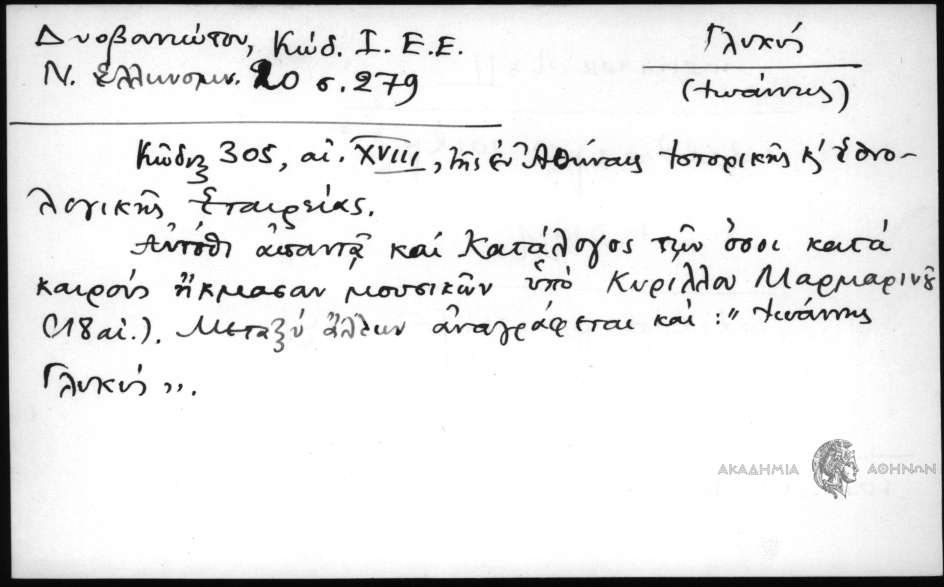 Δυοβουνιώτου, Κώδ. Ι. Ε. Ε.
Ν. Ἑλληνομν. 20 σ. 279
Γλυκύς
(Ἰωάννης)
Κῶδιξ 305, αἰ. XVIII, τῆς ἐν Ἀθήναις Ἱστορικῆς κ' Ἐθνο-
λογικῆς Ἑταιρείας.
Αὐτόθι ἀπαντᾷ καί Κατάλογος τῶν ὅσοι κατά
καιρούς ἤκμασαν μουσικῶν ὑπό Κυρίλλου Μαρμαρινοῦ
(18 αἰ.). Μεταξύ ἄλλων ἀναγράφεται καί : " Ἰωάννης
Γλυκύς ".
ΑΚΑΔΗΜΙΑ ΑΘΗΝΩΝ